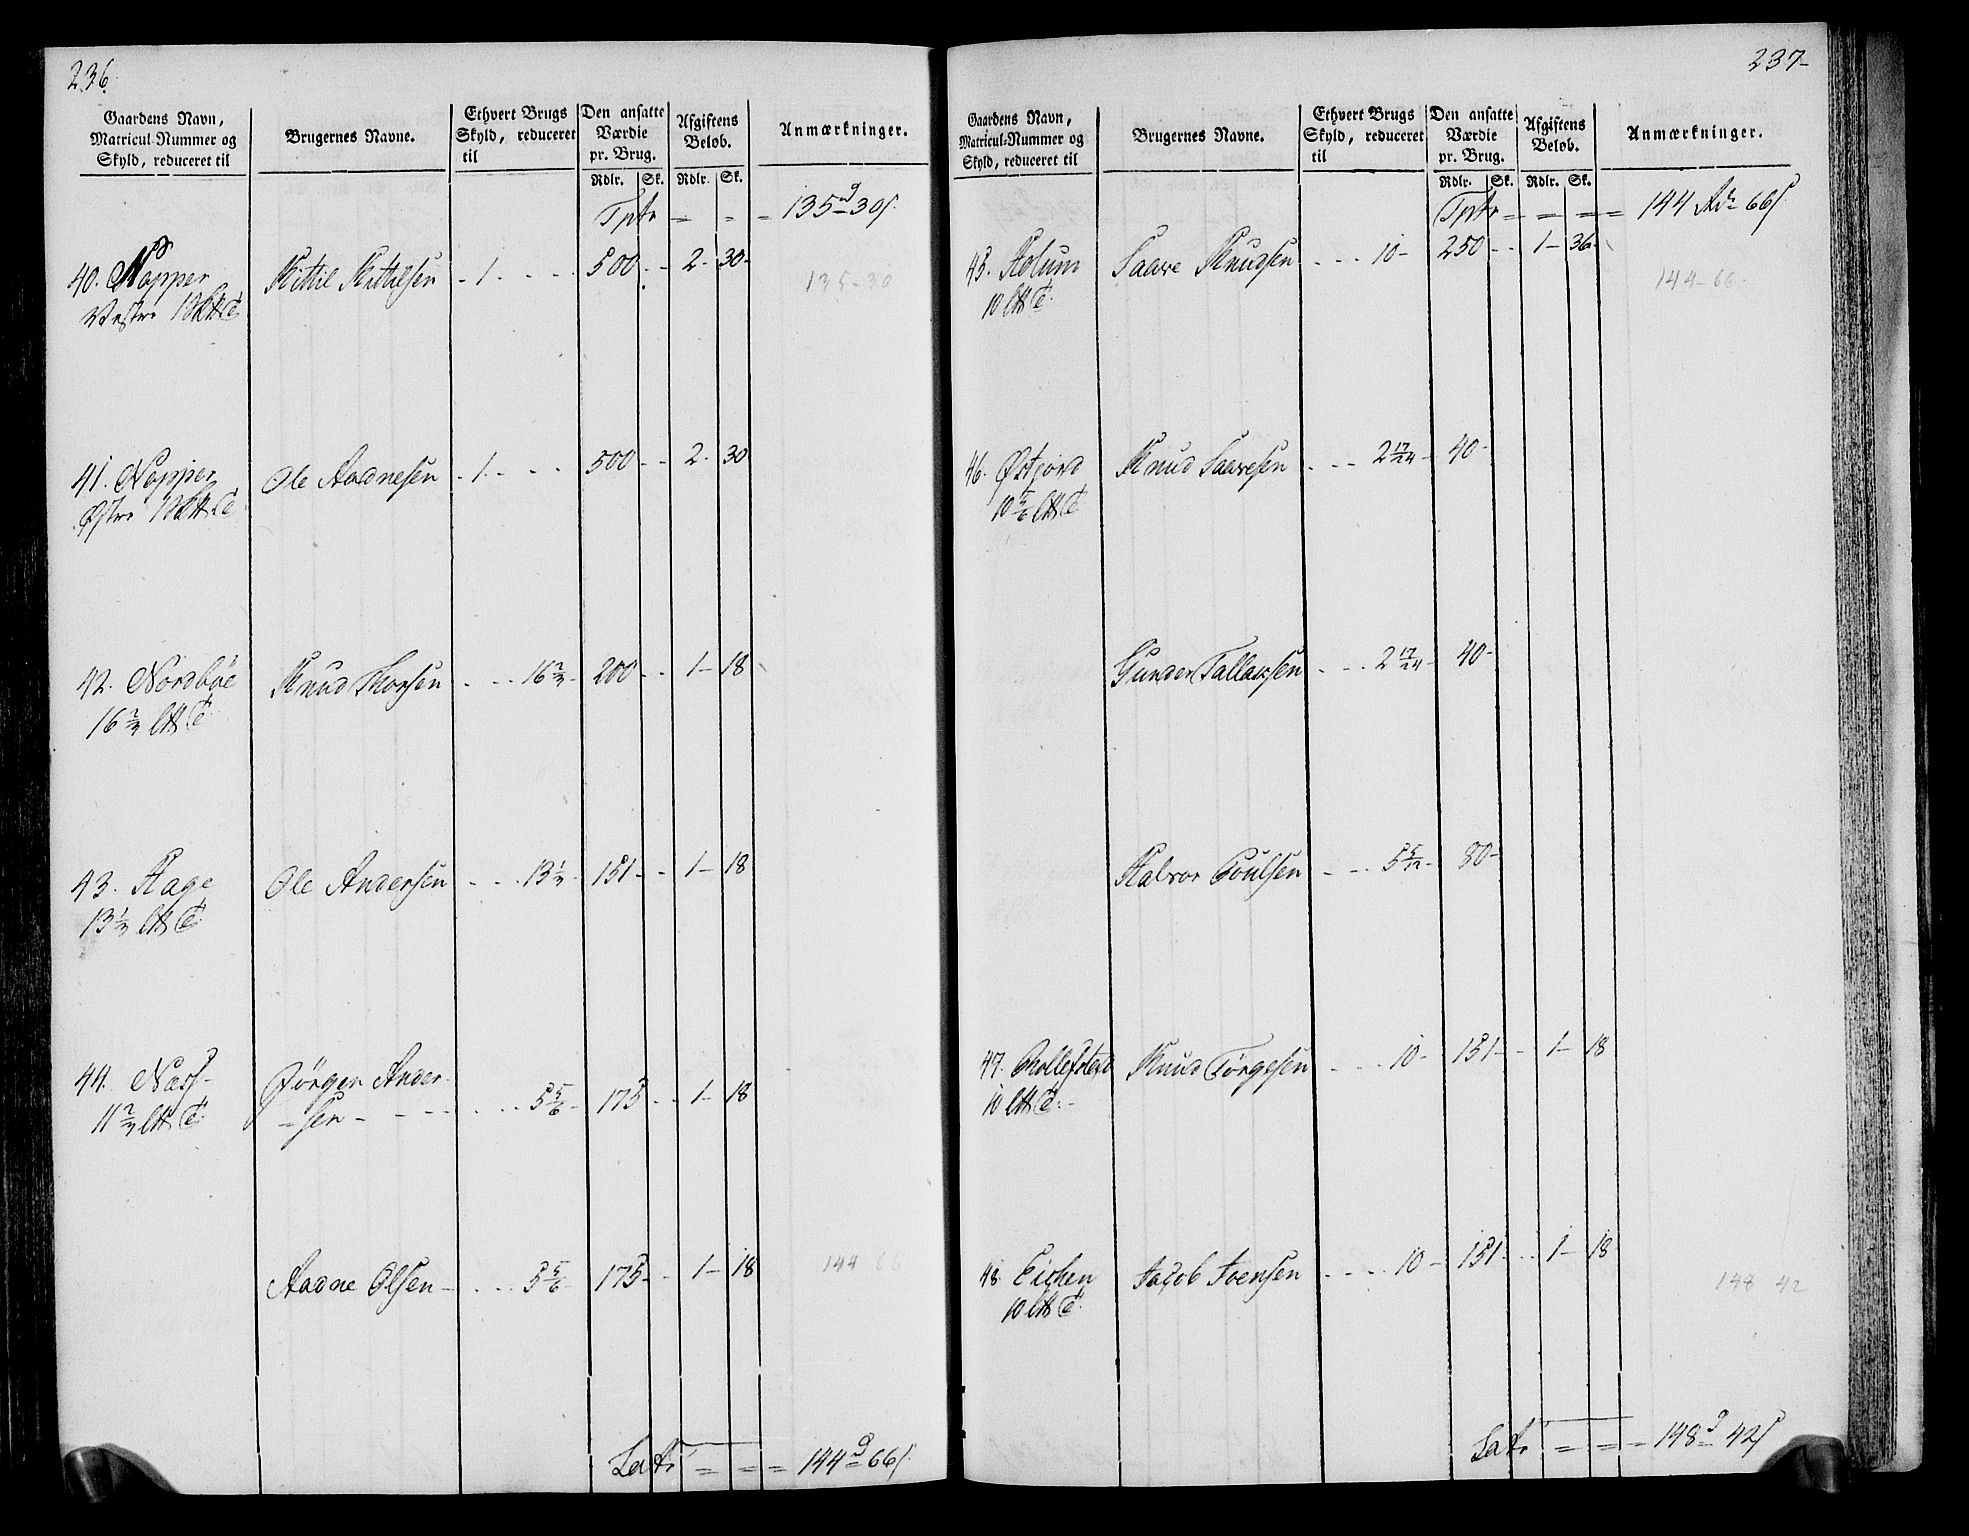 236.
Gaardens Navn,
Matricul-Nummer og
Skyld, reduceret til
Brugernes Navne.
Ethvert Brugs
Skyld, reduceret
til
Den ansatte
Værdie
pr. Brug.
Afgiftens
Beløb.
Anmærkninger.
Rdlr. Sk. Rdlr. Sk.
Tptr = = = 135 d 30 s.
40. Napper Kittil Kittilsen - 1 - - - 500 - - 2 - 30 -
Vestre 1 135-30
41. Napper Ole Aadnesen - 1 - - - 500 - - 2 - 30
Østre 1
42. Nordbøe Knud Thorsen - - - 16 2/3 - 200 - - 1 - 18
16 2/3
43. Hage Ole Andersen - - - 13 1/3 - 151 - - 1 - 18
13 1/3
44. Nass- Jørgen Ander-
11 2/3 -sen - - - - - 5 5/6 - 175 - - 1 - 18
Aadne Olsen - - - 5 5/6 - 175 - - 1 - 18 144 66
Latr = = = 144 d 66 s.
237-
Gaardens Navn,
Matricul-Nummer og
Skyld, reduceret til
Brugernes Navne.
Ethvert Brugs
Skyld, reduceret
til
Den ansatte
Værdie
pr. Brug.
Afgiftens
Beløb.
Anmærkninger.
Rdlr. Sk. Rdlr. Sk.
Tptr = = = = 144 Rd 66 s
45. Holum Saave Knudsen - - - 10 - 250 - - 1 - 36 -
10 144-66
46. Østjord Knud Saavesen - - - 2 17/24 - 40 -
10 5/6
Gunder Tallaksen - - - 2 17/24 - 40 -
Halvor Poulsen - - - 5 5/12 - 80 -
47. Knud Tørgesen - - - 10 - 151 - - 1 - 18
10
48. Eichen Jacob Joensen - - - 10 - 151 - - 1 - 18
10 148 42
Latr = = = 148 d 42 s